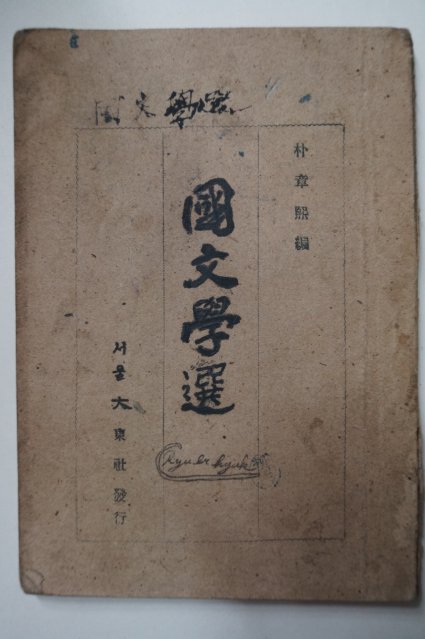 國文學選
朴章熙編
國文學選
서울 大東社發行